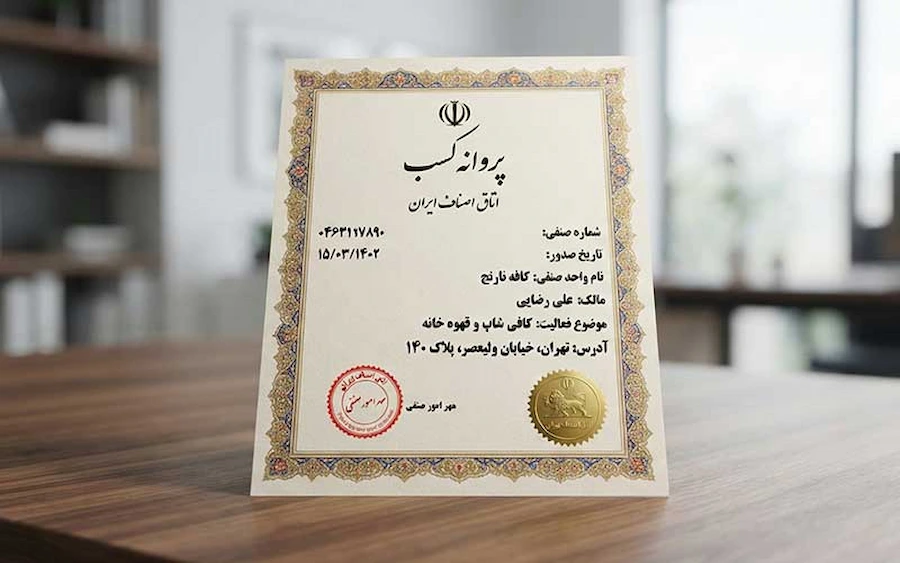 پروانه کسب
اتاق اصناف ایران
شماره صنفی: ۰۴۶۳۱۱۷۸۹۰
تاریخ صدور: ۱۵/۰۳/۱۴۰۲
نام واحد صنفی: کافه نارنج
مالک: علی رضایی
موضوع فعالیت: کافی شاپ و قهوه خانه
آدرس: تهران، خیابان ولیعصر، پلاک ۱۴۰
مهر امور صنفی
مهر امور صنفی